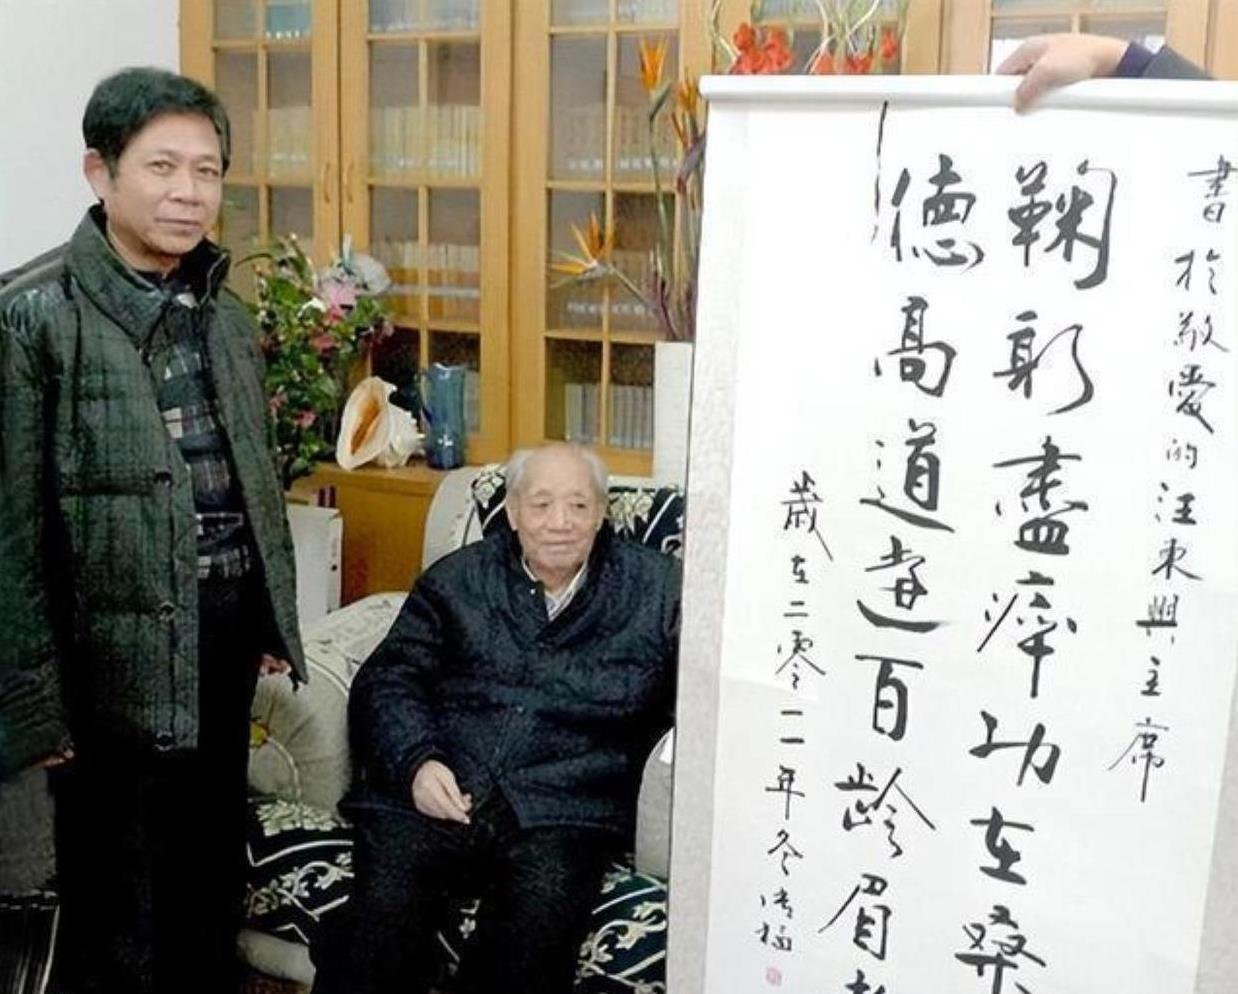 書於敬愛的汪東興主席
鞠躬盡瘁功在桑
德高道遠百齡眉
歲在二零一一年冬